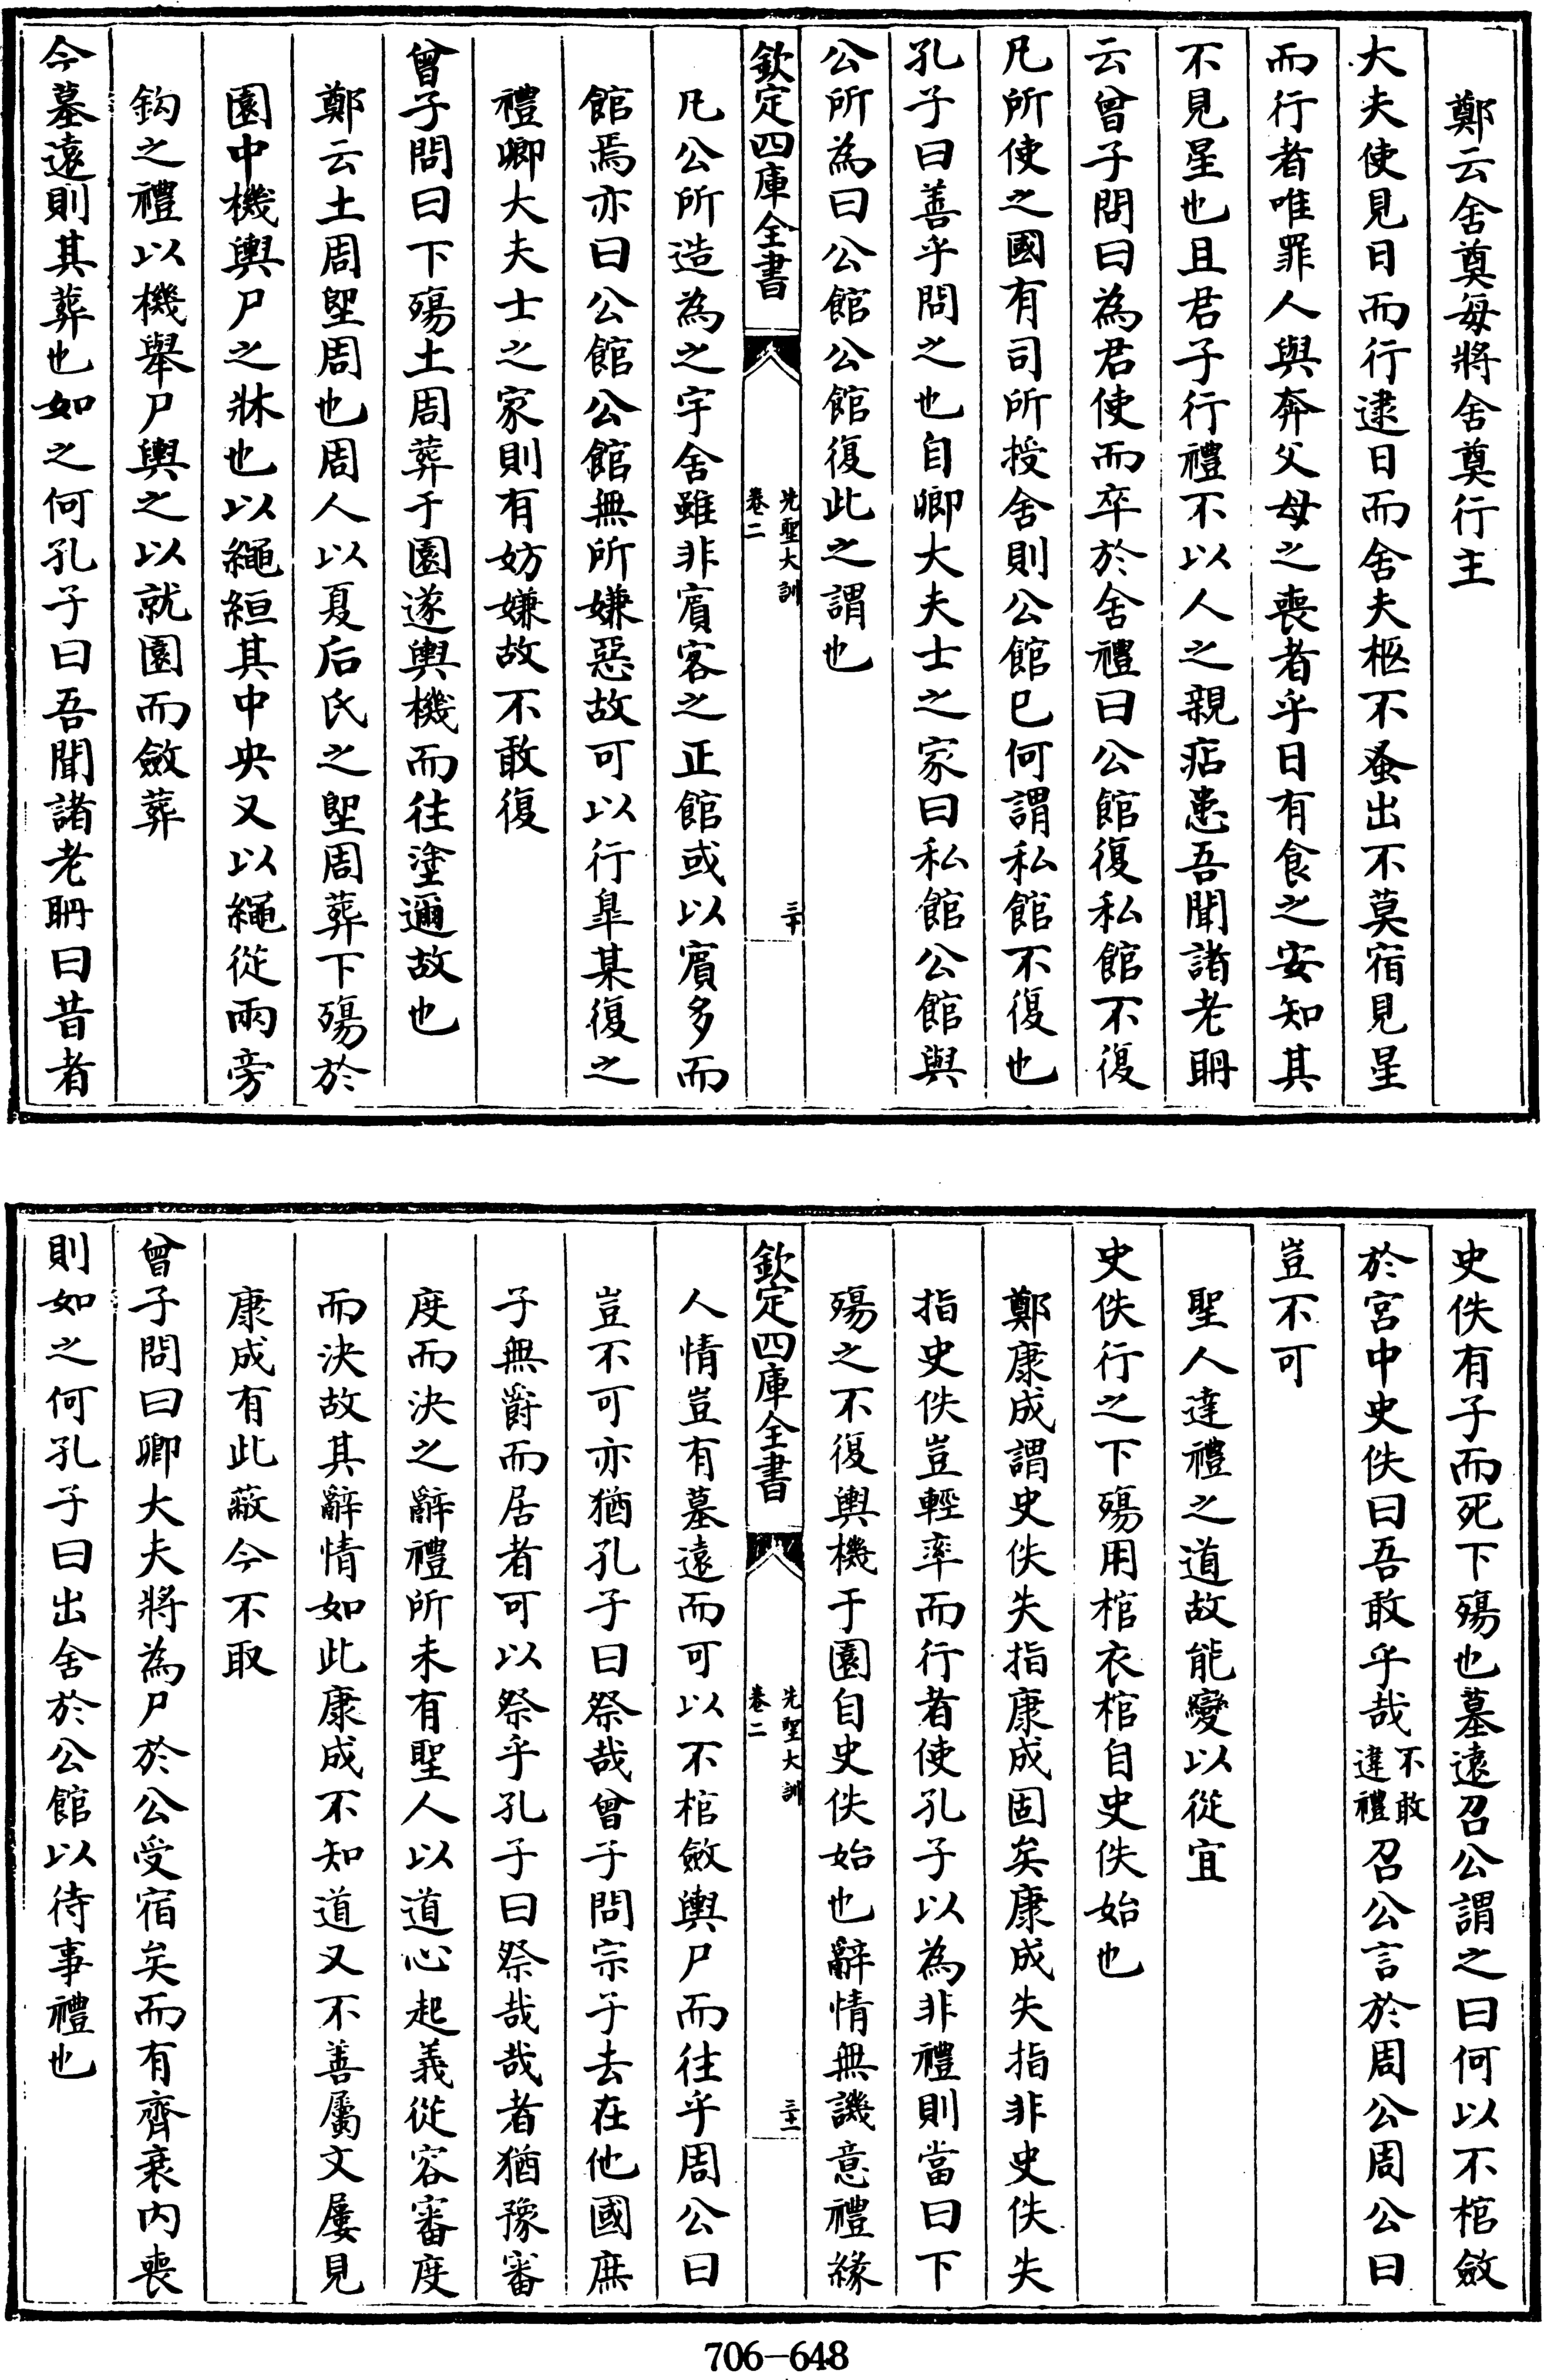 鄭云舍奠每將舍奠行主
大夫使見日而行逮日而舍夫柩不蚤出不莫宿見星
而行者唯罪人與奔父母之喪者乎日有食之安知其
不見星也且君子行禮不以人之親痁患吾聞諸老聃
云曾子問曰為君使而卒於舍禮曰公館復私館不復
凡所使之國有司所授舍則公館已何謂私館不復也
孔子曰善乎問之也自卿大夫士之家曰私館公館與
公所為曰公館公館復此之謂也
欽定四庫全書
先聖大訓
卷二
三十
凡公所造為之宇舍雖非賓客之正館或以賓多而
館焉亦曰公館公館無所嫌惡故可以行臯某復之
禮卿大夫士之家則有妨嫌故不敢復
曾子問曰下殤土周葬于園遂輿機而往塗邇故也
鄭云土周堲周也周人以夏后氏之堲周葬下殤於
園中機輿尸之牀也以繩絙其中央又以繩從兩旁
鈎之禮以機舉尸輿之以就園而斂葬
今墓遠則其葬也如之何孔子曰吾聞諸老聃曰昔者
史佚有子而死下殤也墓遠召公謂之曰何以不棺斂
於宮中史佚曰吾敢乎哉不敢違禮召公言於周公周公曰
豈不可
聖人達禮之道故能變以從宜
史佚行之下殤用棺衣棺自史佚始也
鄭康成謂史佚失指康成固矣康成失指非史佚失
指史佚豈輕率而行者使孔子以為非禮則當曰下
殤之不復輿機于園自史佚始也辭情無譏意禮緣
欽定四庫全書
先聖大訓
卷二
三十一
人情豈有墓遠而可以不棺斂輿尸而往乎周公曰
豈不可亦猶孔子曰祭哉曾子問宗子去在他國庶
子無爵而居者可以祭乎孔子曰祭哉哉者猶豫審
度而決之辭禮所未有聖人以道心起義從容審度
而決故其辭情如此康成不知道又不善屬文屢見
康成有此蔽今不取
曾子問曰卿大夫將為尸於公受宿矣而有齊衰內喪
則如之何孔子曰出舍於公館以待事禮也
706-648